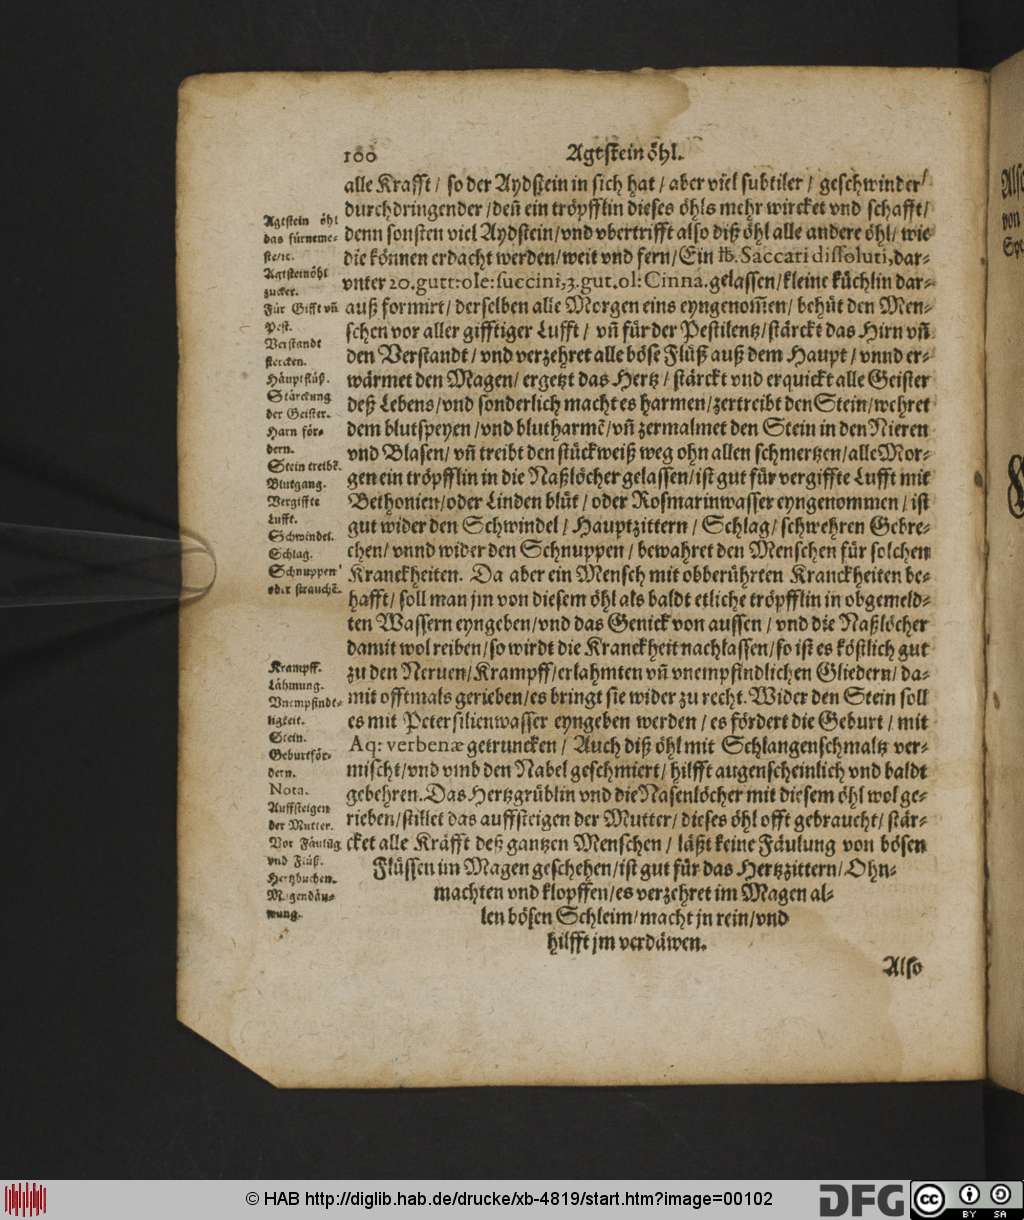 100
Agtstein öhl.
alle Krafft / so der Aydstein in sich hat / aber viel subtiler / geschwinder /
durchdringender / deñ ein tröpfflin dieses öhls mehr wircket vnd schafft /
denn sonsten viel Aydstein / vnd vbertrifft also diß öhl alle andere öhl / wie
die können erdacht werden / weit vnd fern / Ein ℔. Saccari dissoluti, dar-
vnter 20. gutt: ole: succini, 3. gut. ol: Cinná. gelassen / kleine küchlin dar-
auß formirt / derselben alle Morgen eins eyngenom̃en / behüt den Men-
schen vor aller gifftiger Lufft / vñ für der Pestilentz / stärckt das Hirn vñ
den Verstandt / vnd verzehret alle böse Flüß auß dem Haupt / vnnd er-
wärmet den Magen / ergetzt das Hertz / stärckt vnd erquickt alle Geister
deß Lebens / vnd sonderlich macht es harmen / zertreibt den Stein / wehret
dem blutspeyen / vnd blutharmẽ / vñ zermalmet den Stein in den Nieren
vnd Blasen / vñ treibt den stückweiß weg ohn allen schmertzen / alle Mor-
gen ein tröpfflin in die Naßlöcher gelassen / ist gut für vergiffte Lufft mit
Bethonien / oder Linden blüt / oder Rosmarinwasser eyngenommen / ist
gut wider den Schwindel / Hauptzittern / Schlag / schwehren Gebre-
chen / vnnd wider den Schnuppen / bewahret den Menschen für solchen
Kranckheiten. Da aber ein Mensch mit obberührten Kranckheiten be-
hafft / soll man jm von diesem öhl als baldt etliche tröpfflin in obgemeld-
ten Wassern eyngeben / vnd das Genick von aussen / vnd die Naßlöcher
damit wol reiben / so wirdt die Kranckheit nachlassen / so ist es köstlich gut
zu den Neruen / Krampff / erlahmten vñ vnempfindlichen Gliedern / da-
mit offtmals gerieben / es bringt sie wider zu recht. Wider den Stein soll
es mit Petersilienwasser eyngeben werden / es fördert die Geburt / mit
Aq: verbenæ getruncken / Auch diß öhl mit Schlangenschmaltz ver-
mischt / vnd vmb den Nabel geschmiert / hilfft augenscheinlich vnd baldt
gebehren. Das Hertzgrüblin vnd die Nasenlöcher mit diesem öhl wol ge-
rieben / stillet das auffsteigen der Mutter / dieses öhl offt gebraucht / stär-
cket alle Kräfft deß gantzen Menschen / läßt keine Fäulung von bösen
Flüssen im Magen geschehen / ist gut für das Hertzzittern / Ohn-
machten vnd klopffen / es verzehret im Magen al-
len bösen Schleim / macht jn rein / vnd
hilfft jm verdäwen.
Also
Agtstein öhl
das fürneme-
ste/ꝛc.
Agtsteinöhl
zucker.
Für Gifft vñ
Pest.
Verstandt
stercken.
Häuptflüß.
Stärckung
der Geister.
Harn för-
dern.
Stein treibẽ.
Blutgang.
Vergiffte
Lufft.
Schwindel.
Schlag.
Schnuppen
oder strauchẽ.
Krampff.
Lähmung.
Vnempfindt-
ligkeit.
Stein.
Geburtför-
dern.
Nota.
Auffsteigen
der Mutter.
Vor Fäulũg
vnd Flüß.
Hertzbuchen.
Magendäu-
wung.
© HAB http://diglib.hab.de/drucke/xb-4819/start.htm?image=00102
DFG
cc
BY SA